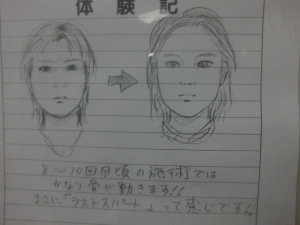 体験記
8〜10回目頃の施術では
かなり骨が動きます!!
まさに「ラストスパート」って感じです!!